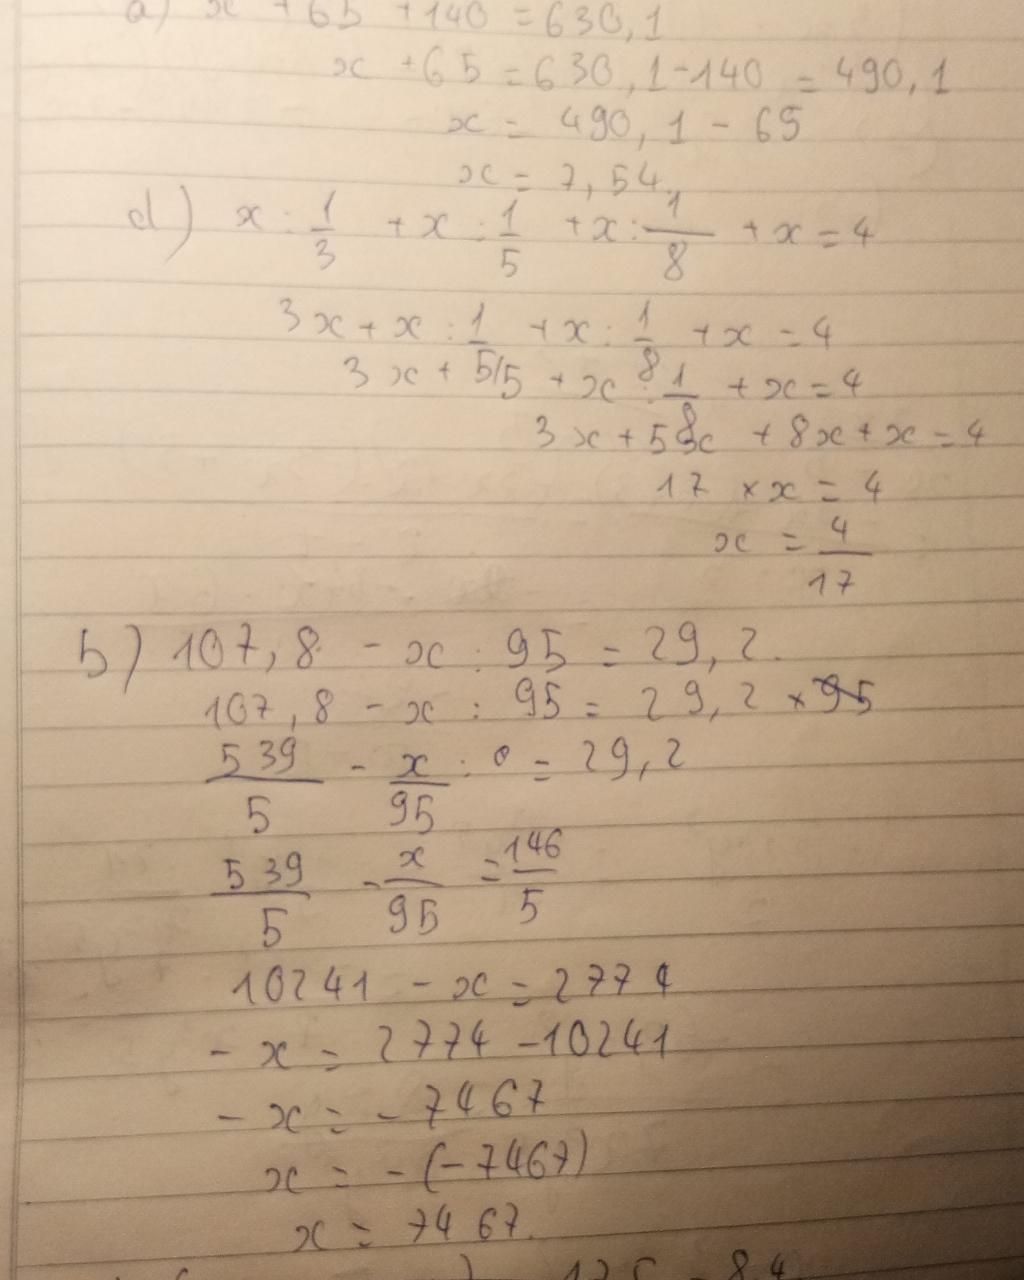 a) x + 65 + 140 = 630,1
x + 65 = 630,1 - 140 = 490,1
x = 490,1 - 65
x = 7,54
d) x : 1/3 + x : 1/5 + x : 1/8 + x = 4
3x + x : 1/5 + x : 1/8 + x = 4
3x + 5/5 + x : 1/8 + x = 4
3x + 5x + 8x + x = 4
17 × x = 4
x = 4/17
b) 107,8 - x : 95 = 29,2
107,8 - x : 95 = 29,2 × 95
539/5 - x/95 : = 29,2
539/5 - x/95 = 146/5
10241 - x = 2774
- x = 2774 - 10241
- x = - 7467
x = - (-7467)
x = 7467.